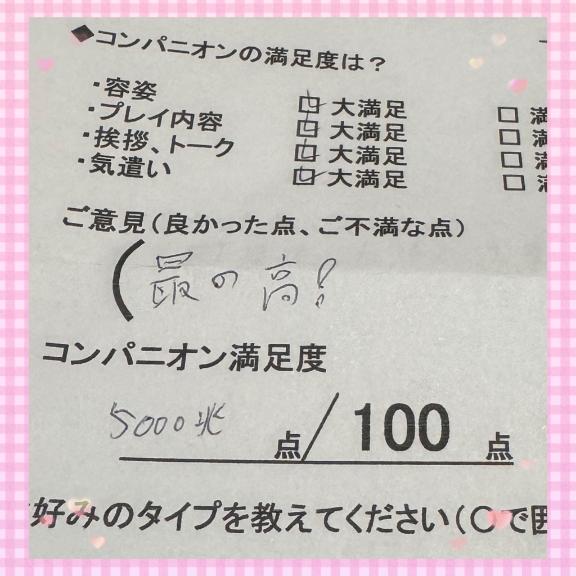 ◆コンパニオンの満足度は？
・容姿 ☑ 大満足 □ 満
・プレイ内容 ☑ 大満足 □ 満
・挨拶、トーク ☑ 大満足 □ 満
・気遣い ☑ 大満足 □ 満
ご意見（良かった点、ご不満な点）
（最の高！
コンパニオン満足度
5000兆点／100点
好みのタイプを教えてください（〇で囲